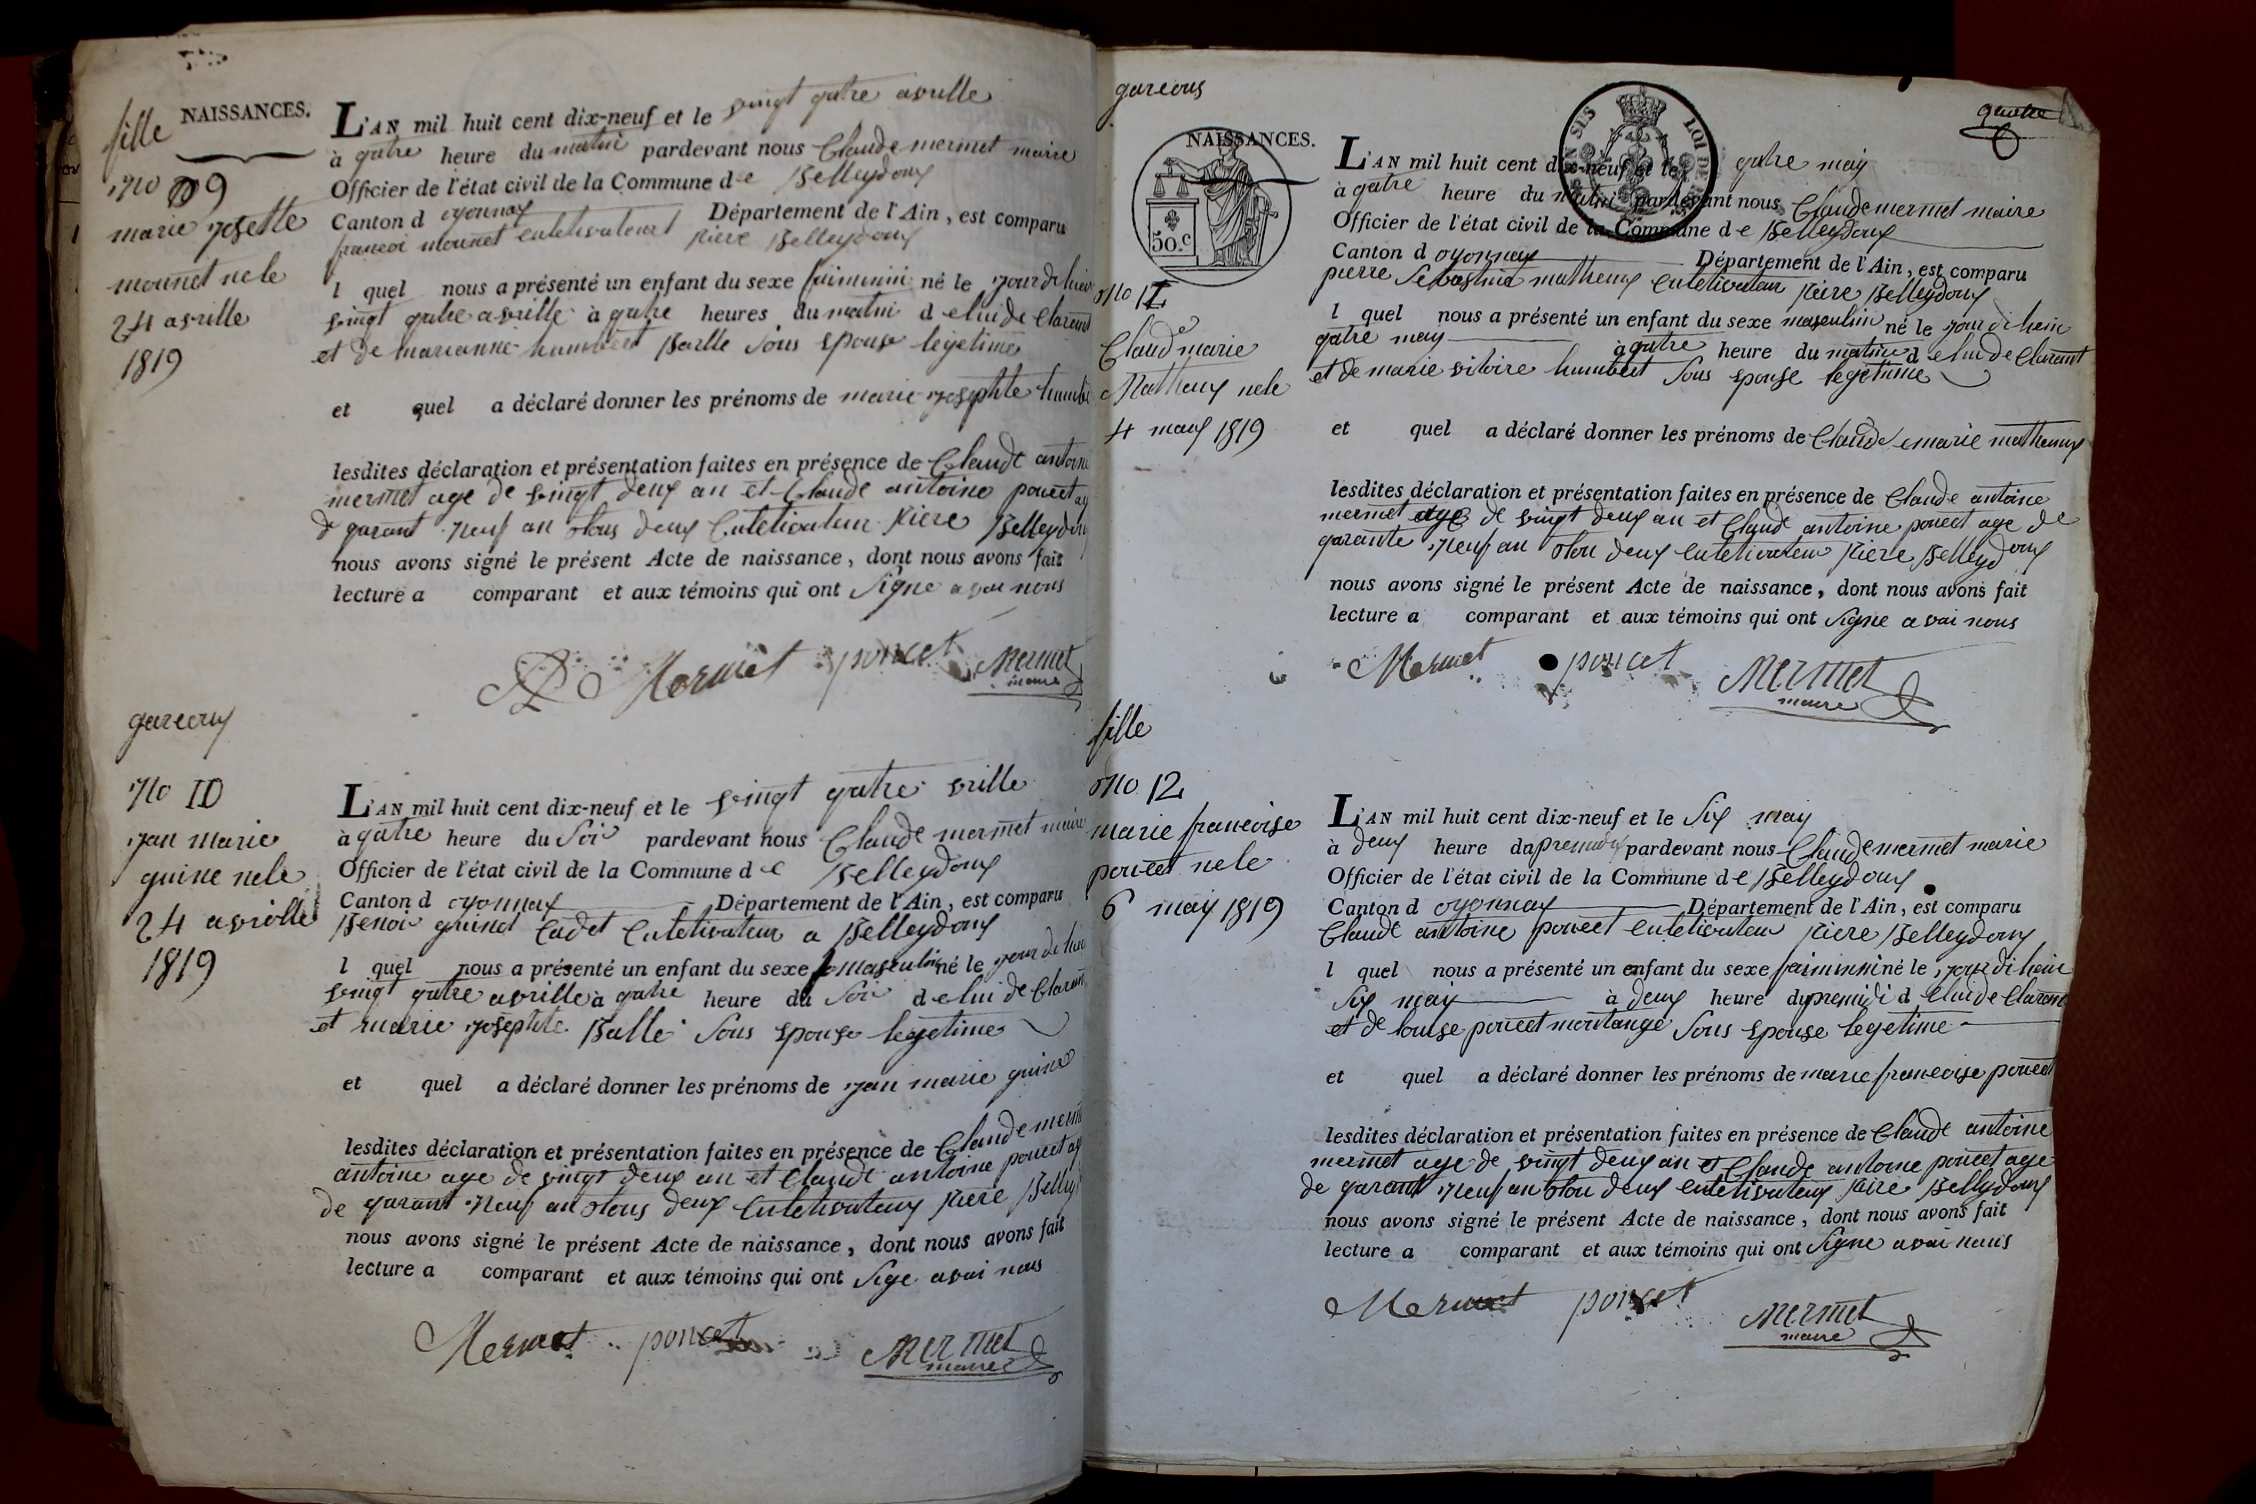 fille
NAISSANCES.
no 9
marie josette
mounet nele
24 avrille
1819
L'AN mil huit cent dix-neuf et le vingt qatre avrille
à qatre heure du matin pardevant nous Claude mermet maire
Officier de l'état civil de la Commune d e Belleydoux
Canton d oyonnax Département de l'Ain, est comparu
francoi mounet culetivateur Belleydoux
l quel nous a présenté un enfant du sexe faiminin né le jour
vingt qatre avrille à qatre heures du matin d elui de Clarent
et de marianne humbert Balle sous epouse legetime
et quel a déclaré donner les prénoms de marie josephte
lesdites déclaration et présentation faites en présence de Claude antoine
mermet age de vingt deux an et Claude antoine poncet
d garant neuf an tous deux Culetivateur Belleydoux
nous avons signé le présent Acte de naissance, dont nous avons fait
lecture a comparant et aux témoins qui ont signe avai nous
Mermet poncet Mermet
maire
garcons
no 10
jan marie
guine nele
24 avrille
1819
L'AN mil huit cent dix-neuf et le vingt qatre vrille
à qatre heure du soir pardevant nous Claude mermet maire
Officier de l'état civil de la Commune d e Belleydoux
Canton d oyonnax Département de l'Ain, est comparu
Benoi guinet Cadet Culetivateur a Belleydoux
l quel nous a présenté un enfant du sexe masculin né le jour
vingt qatre avrille à qatre heure du soir d elui de Clarent
et marie josephte Balle sous epouse legetime
et quel a déclaré donner les prénoms de jan marie guine
lesdites déclaration et présentation faites en présence de Claude mermet
antoine age de vingt deux an et Claude antoine poncet
de garant neuf an tous deux Culetivateux
nous avons signé le présent Acte de naissance, dont nous avons fait
lecture a comparant et aux témoins qui ont sige avai nous
Mermet poncet Mermet
maire
garcons
quatre
NAISSANCES.
50.c
no 11
Claude marie
Matheux nele
4 maux 1819
L'AN mil huit cent dix-neuf et le qatre maiy
à qatre heure du matin pardevant nous Claude mermet maire
Officier de l'état civil de la Commune d e Belleydoux
Canton d oyonnax Département de l'Ain, est comparu
pierre Sebastina matheux Culetivateur Belleydoux
l quel nous a présenté un enfant du sexe masculin né le jour
qatre maiy à qatre heure du matin d elui de Clarant
et de marie vitoire humbert sous epouse legetime
et quel a déclaré donner les prénoms de Claude marie matheux
lesdites déclaration et présentation faites en présence de Claude antoine
mermet age de vingt deux an et Claude antoine poncet age de
garante neuf an tou deux culetivateur Belleydoux
nous avons signé le présent Acte de naissance, dont nous avons fait
lecture a comparant et aux témoins qui ont signe avai nous
Mermet poncet Mermet
maire
fille
no 12
marie francoise
poncet nele
6 maiy 1819
L'AN mil huit cent dix-neuf et le six maiy
à deux heure dapremidi pardevant nous Claude mermet marie
Officier de l'état civil de la Commune d e Belleydoux
Canton d oyonnax Département de l'Ain, est comparu
Claude antoine poncet culetivateur Belleydoux
l quel nous a présenté un enfant du sexe faiminin né le jour
six maiy à deux heure dapremidi d elui de Clarent
et de louise poncet montange sous epouse legetime
et quel a déclaré donner les prénoms de marie francoise poncet
lesdites déclaration et présentation faites en présence de Claude antoine
mermet age de vingt deux an et Claude antoine poncet age
de garant neuf an tou deux culetivateux Belleydoux
nous avons signé le présent Acte de naissance, dont nous avons fait
lecture a comparant et aux témoins qui ont signe avai nous
Mermet poncet Mermet
maire